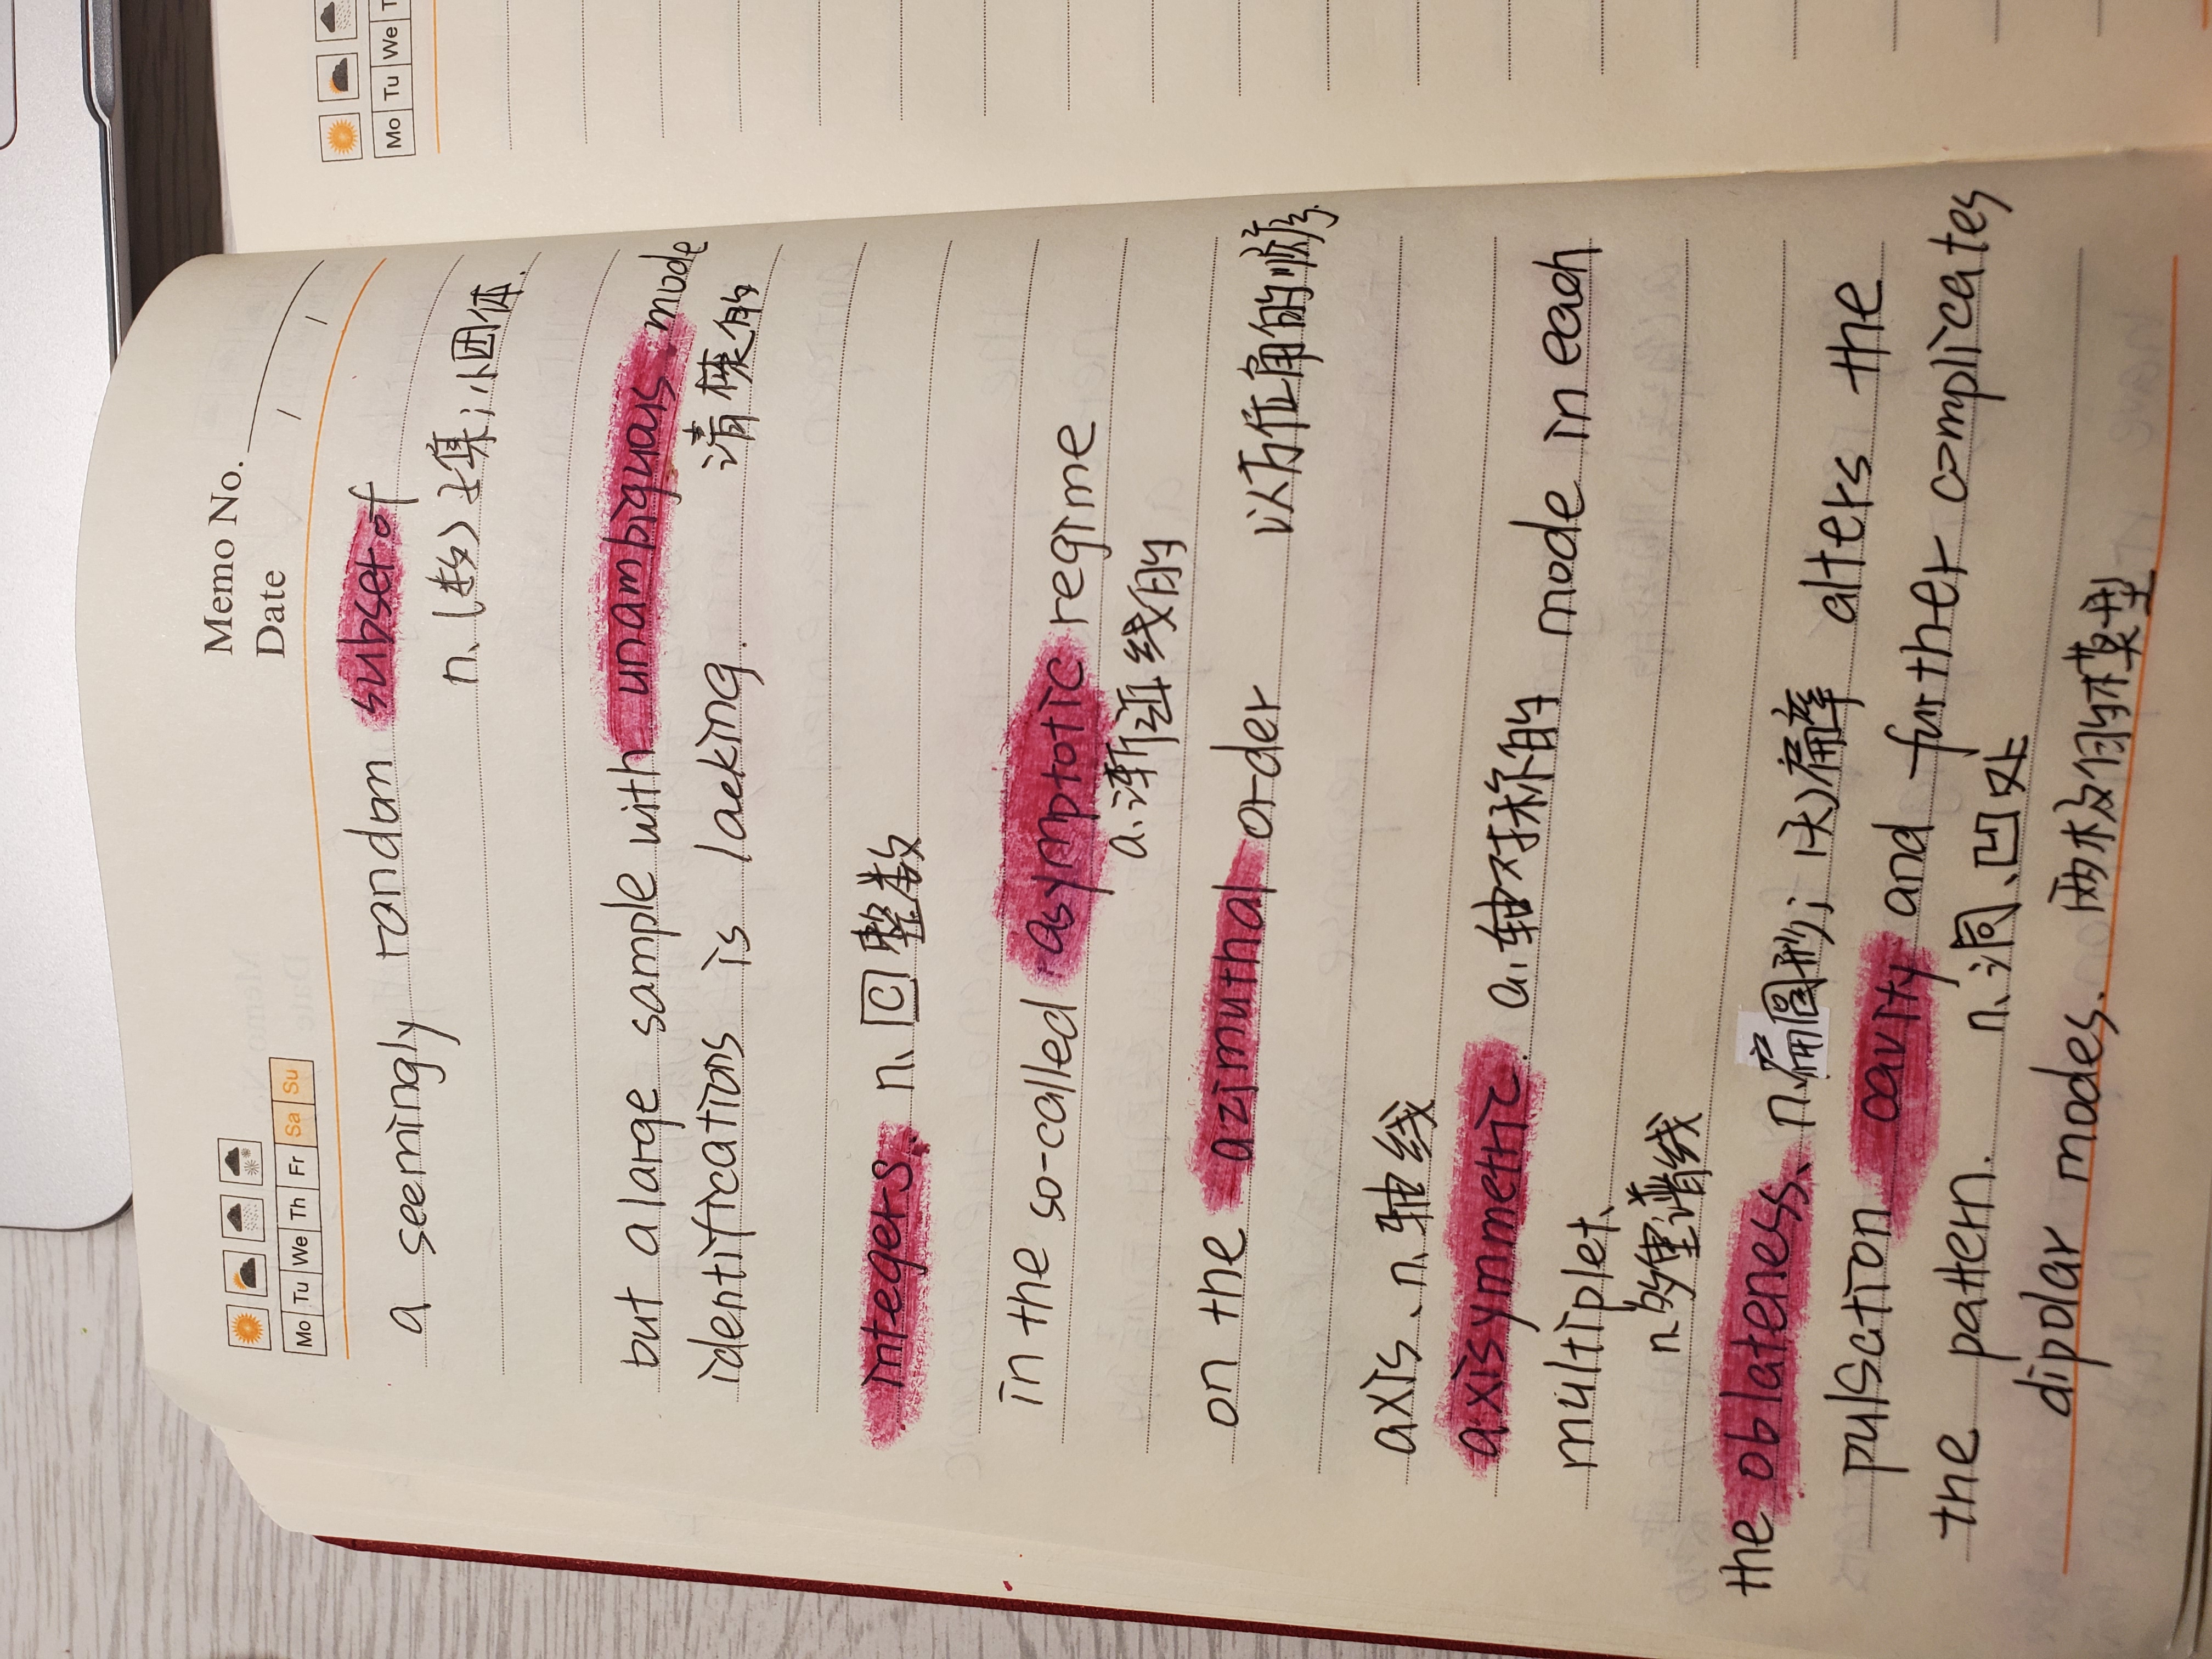 Memo No.
Mo Tu We Th Fr Sa Su
Date / /
a seemingly random subset of
n.(数)子集;小团体.
but a large sample with unambiguous mode
identifications is lacking. 清楚的
integers. n. [C] 整数
in the so-called asymptotic regime
a.渐近线的
on the azimuthal order 以方位角的顺序.
axis. n.轴线
axisymmetric. a.轴对称的 mode in each
multiplet.
n.多重谱线
the oblateness. n.扁圆形;(火)扁率 alters the
pulsation cavity and further complicates
the pattern. n.洞、凹处
dipolar modes. 两极的模型
Mo Tu We